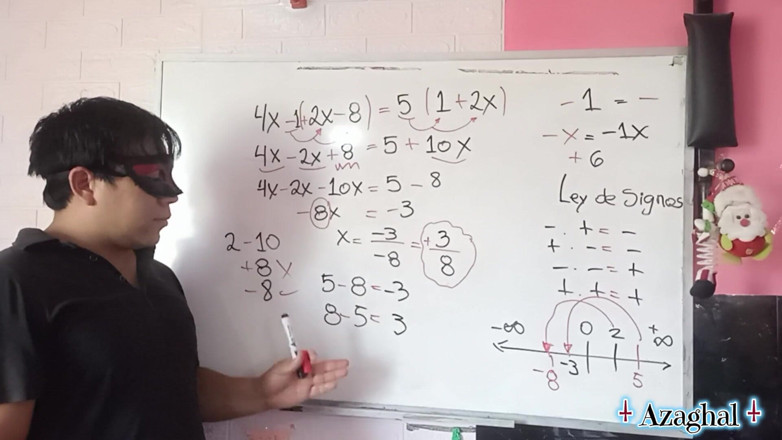 4x-1(+2x-8) = 5 (1+2x)
4x-2x+8 = 5+10x
4x-2x-10x = 5-8
-8x = -3
x = -3/-8 = +3/8
2-10
+8 x
-8 ✓
5-8=-3
8-5=3
-1 = -
-x = -1x
+6
Ley de Signos
- · + = -
+ · - = -
- · - = +
+ · + = +
-∞ 0 2 +∞
-8 -3 5
Azaghal